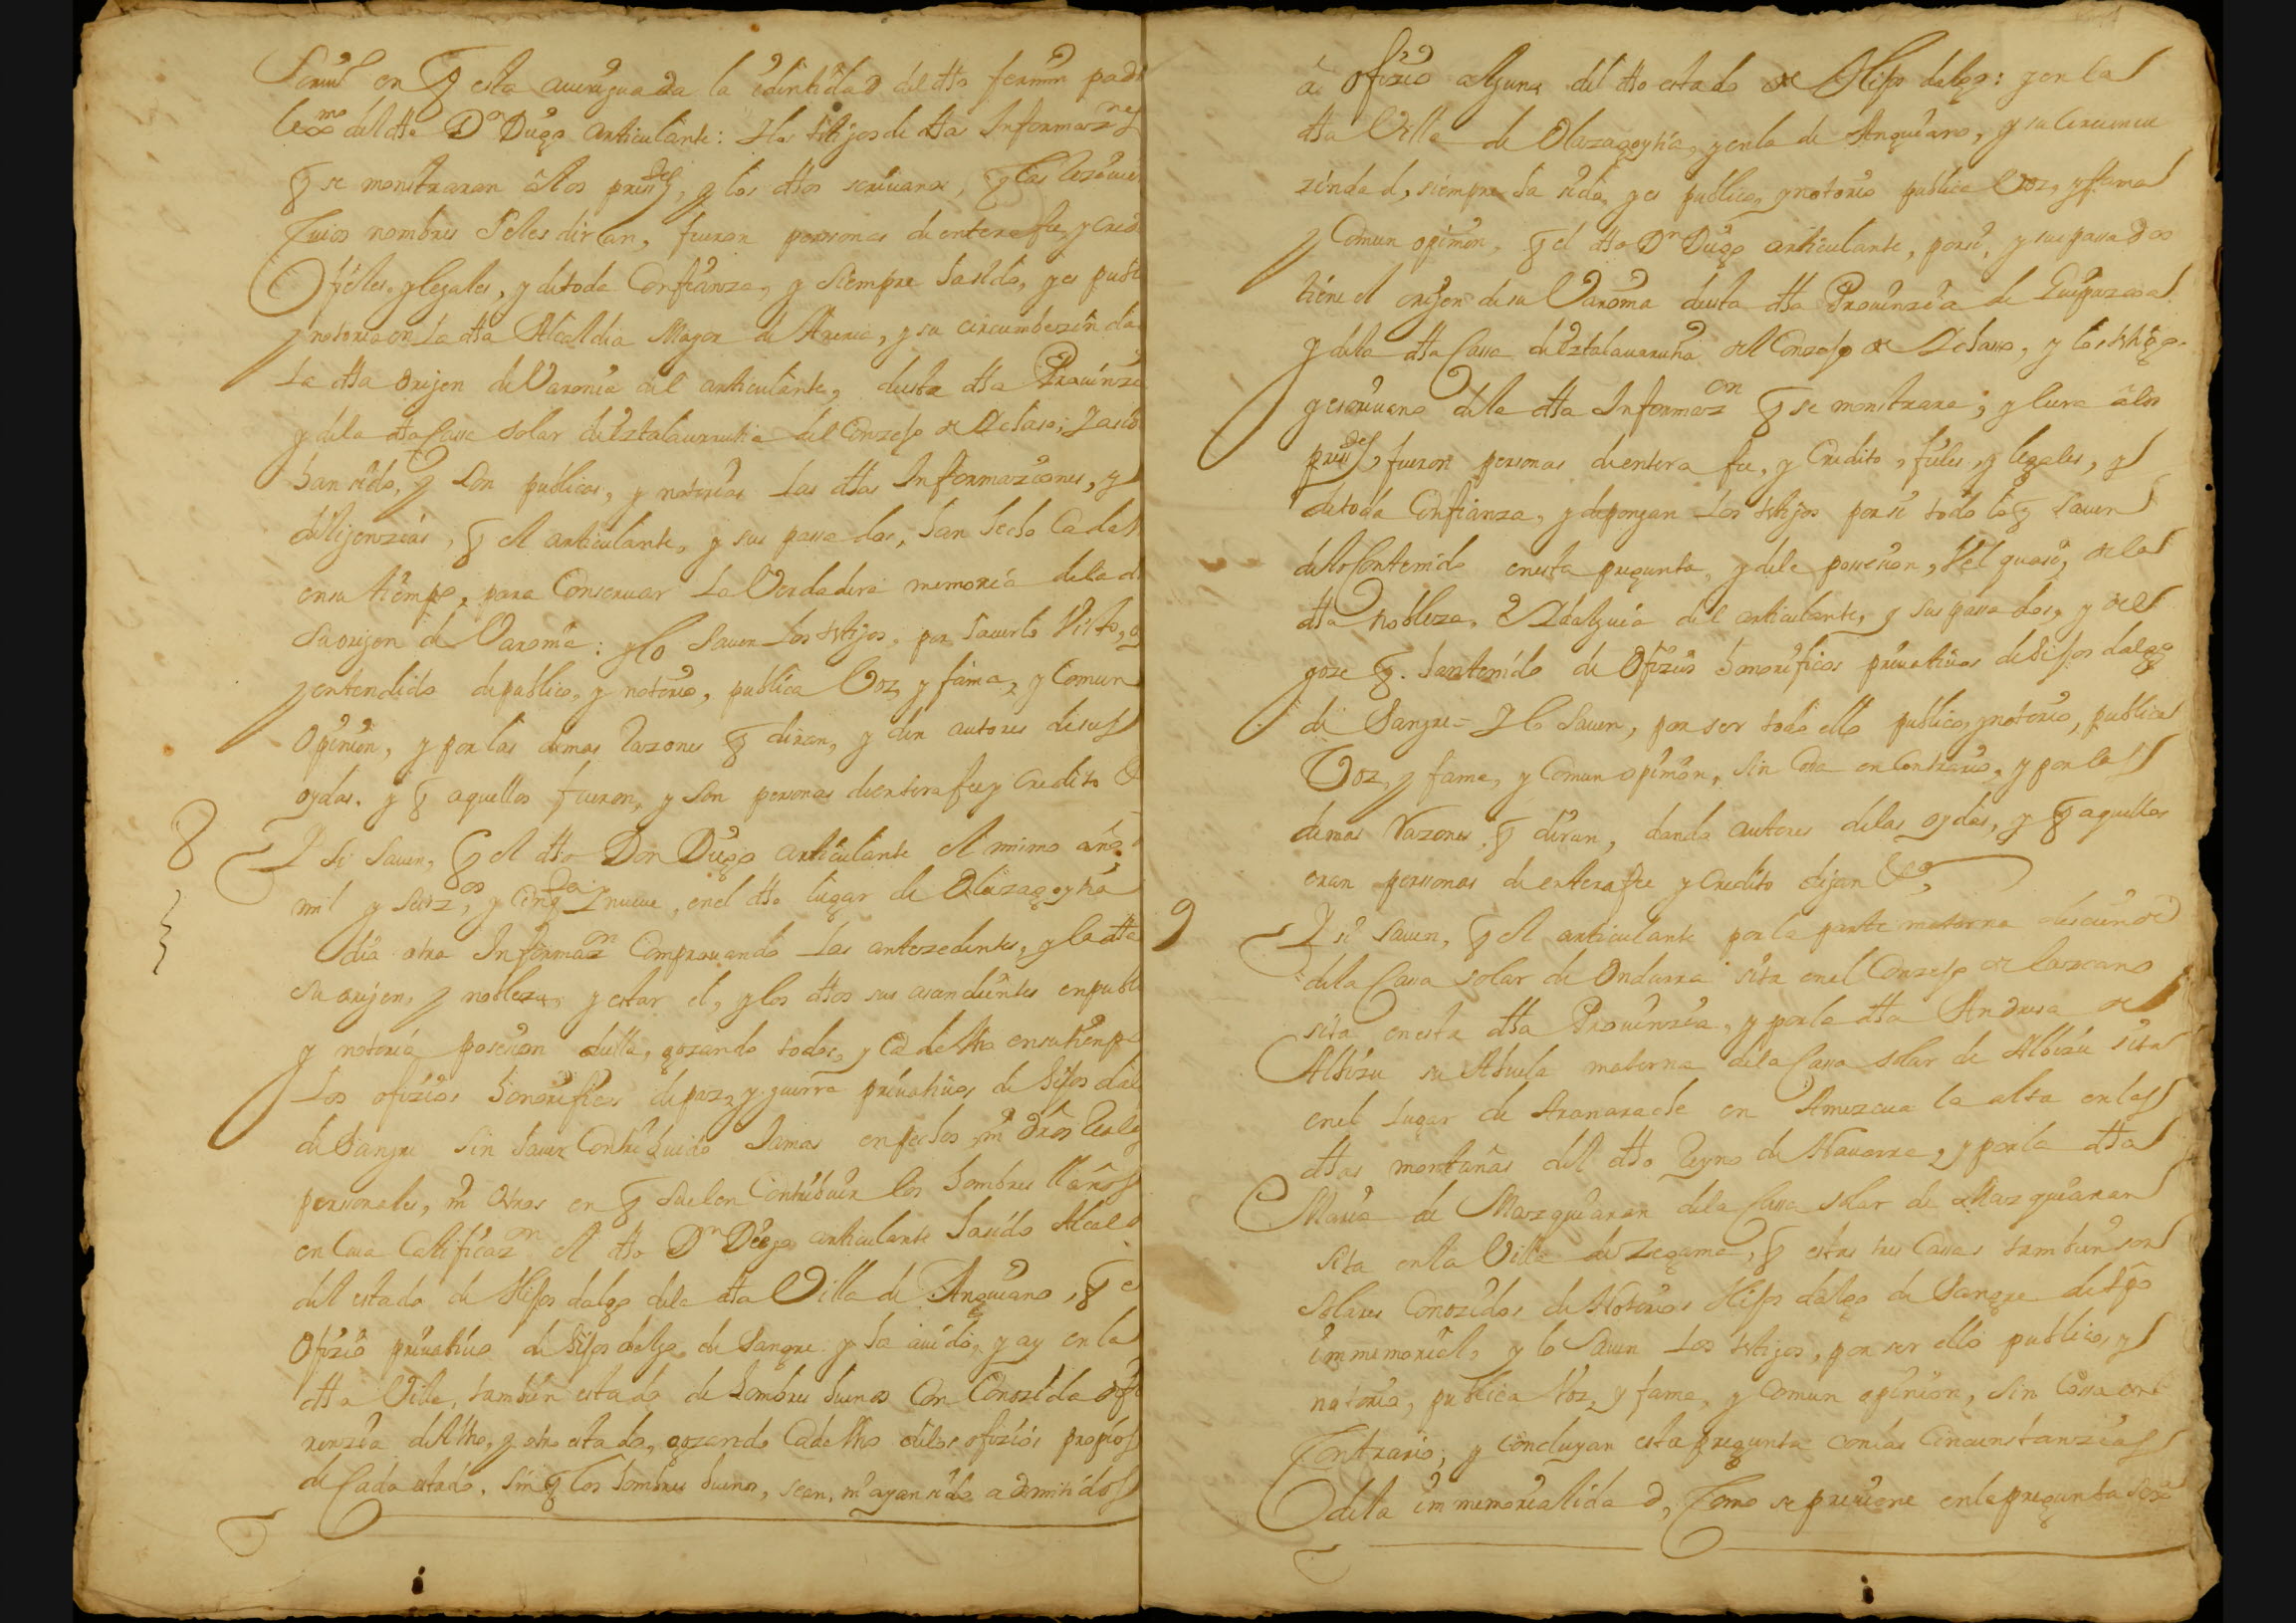 en q esta aueriguada la identidad del dho fermin pad
lexmo del dho Dn Diego articulante: Y los testigos de dhas Informaznes
q se monstraran a los presdes, y los dhos scriuanos,
Cuios nombres se les diran, fueron personas de entera fee, y cred
fieles, y legales, y de toda Confianza, y siempre ha sido, y es publi
y notorio en la dha Alcaldia Mayor de Areria, y su circumbezinda
La dha orijen de Varonia del articulante, desta dha Prouinzi
y dela dha Cassa solar de Vztalaurrutia del Conzejo de
han sido, y son publicas, y notorias las dhas Informaziones, y
dilijenzias, q el articulante, y sus passados, han hecho Cada
en su tiempo, para Conseruar La Verdadera memoria dela d
su orijen de Varonia: y lo sauen los testigos, por hauerlo Visto, o
y entendido de publico, y notorio, publica Voz, y fama, y Comun
Opinion, y por las demas razones q diran, y den autores de sus
oydas. y q aquellos fueron, y son personas de entera fee y credito
8
Y si sauen, q el dho Don Diego articulante el mismo año
mil y seisz.os y cinqta y nueue, en el dho lugar de Olazagoytia
dio otra Informazn Comprouando las antezedentes, y la dha
su orijen, y nobleza, y estar el, y los dhos sus asendientes en publi
y notoria posesion della, gozando todos, y Cada Vno en su tiempo
Los ofizios honorificos de paz, y guerra priuatiuos de hijos dal
de Sangre sin hauer Contribuido Jamas en pechos, ni dros Reale
personales, ni otros en q suelen Contribuir los hombres llanos
en Cuia Calificazn el dho Dn Diego articulante ha sido Alcald
del estado de Hijos dalgo dela dha Villa de Anguiano, q e
Ofizio priuatiuo de hijos dalgo de Sangre y ha auido, y ay en la
dha Villa, tambien estado de hombres buenos Con Conozida dife
renzia del Vno, y otro estado, gozando Cada Vno delos ofizios propios
de Cada estado, sin q los hombres buenos, sean, ni ayan sido admitidos
a ofizio alguno del dho estado de Hijos dalgo: y en la
dha Villa de Olazagoytia, y en la de Anguiano, y su Circumue
zindad, siempre ha sido, y es publico, y notorio publica Voz, y fama
y Comun opinion, q el dho Dn Diego articulante, por si, y sus passados
tiene el orijen de su Varonia desta dha Prouinzia de Guipuzcoa
y dela dha Cassa de Vztalaurrutia del Conzejo de y los testigos
y escriuano dela dha Informazon q se monstrara; y leera a los
presdes, fueron personas de entera fee, y Credito, fieles, y legales, y
de toda Confianza, y depongan los testigos por si todo lo q sauen
delo Contenido en esta pregunta, y dela possesion, Vel quasi, de la
dha nobleza, e Ydalguia del articulante, y sus passados, y del
goze q. han tenido de Ofizios honorificos priuatiuos de hijos dalgo
de Sangre = Y lo Sauen, por ser todo ello publico, y notorio, publica
Voz, y fama, y Comun opinion, sin Cosa en Contrario, y por las
demas Razones, q diran, dando autores delas oydas, y q aquellos
eran personas de entera fee y Credito digan
9
Y si Sauen, q el articulante por la parte materna desciende
dela Cassa solar de Ondarra sita en el Conzejo de Lazcano
sita en esta dha Prouinzia, y por la dha Andresa de
Albizu su Abuela materna dela Cassa solar de Albizu sita
en el Lugar de Aranarache en Amezcua la alta en las
dhas montañas del dho Reyno de Nauarra, y por la dha
Maria de Mazquiaran dela Cassa solar de Mazquiaran
sita en la Villa de Zegama, q estas tres Cassas tambien son
Solares Conozidos de Notorios Hijos dalgo de Sangre de tpo
immemorial, y lo Sauen los testigos, por ser ello publico, y
notorio, publica Voz, y fama, y Comun opinion, sin Cossa en
Contrario, y concluyan esta pregunta con las Circunstanzias
dela immemorialidad, Como se preuiene en la pregunta